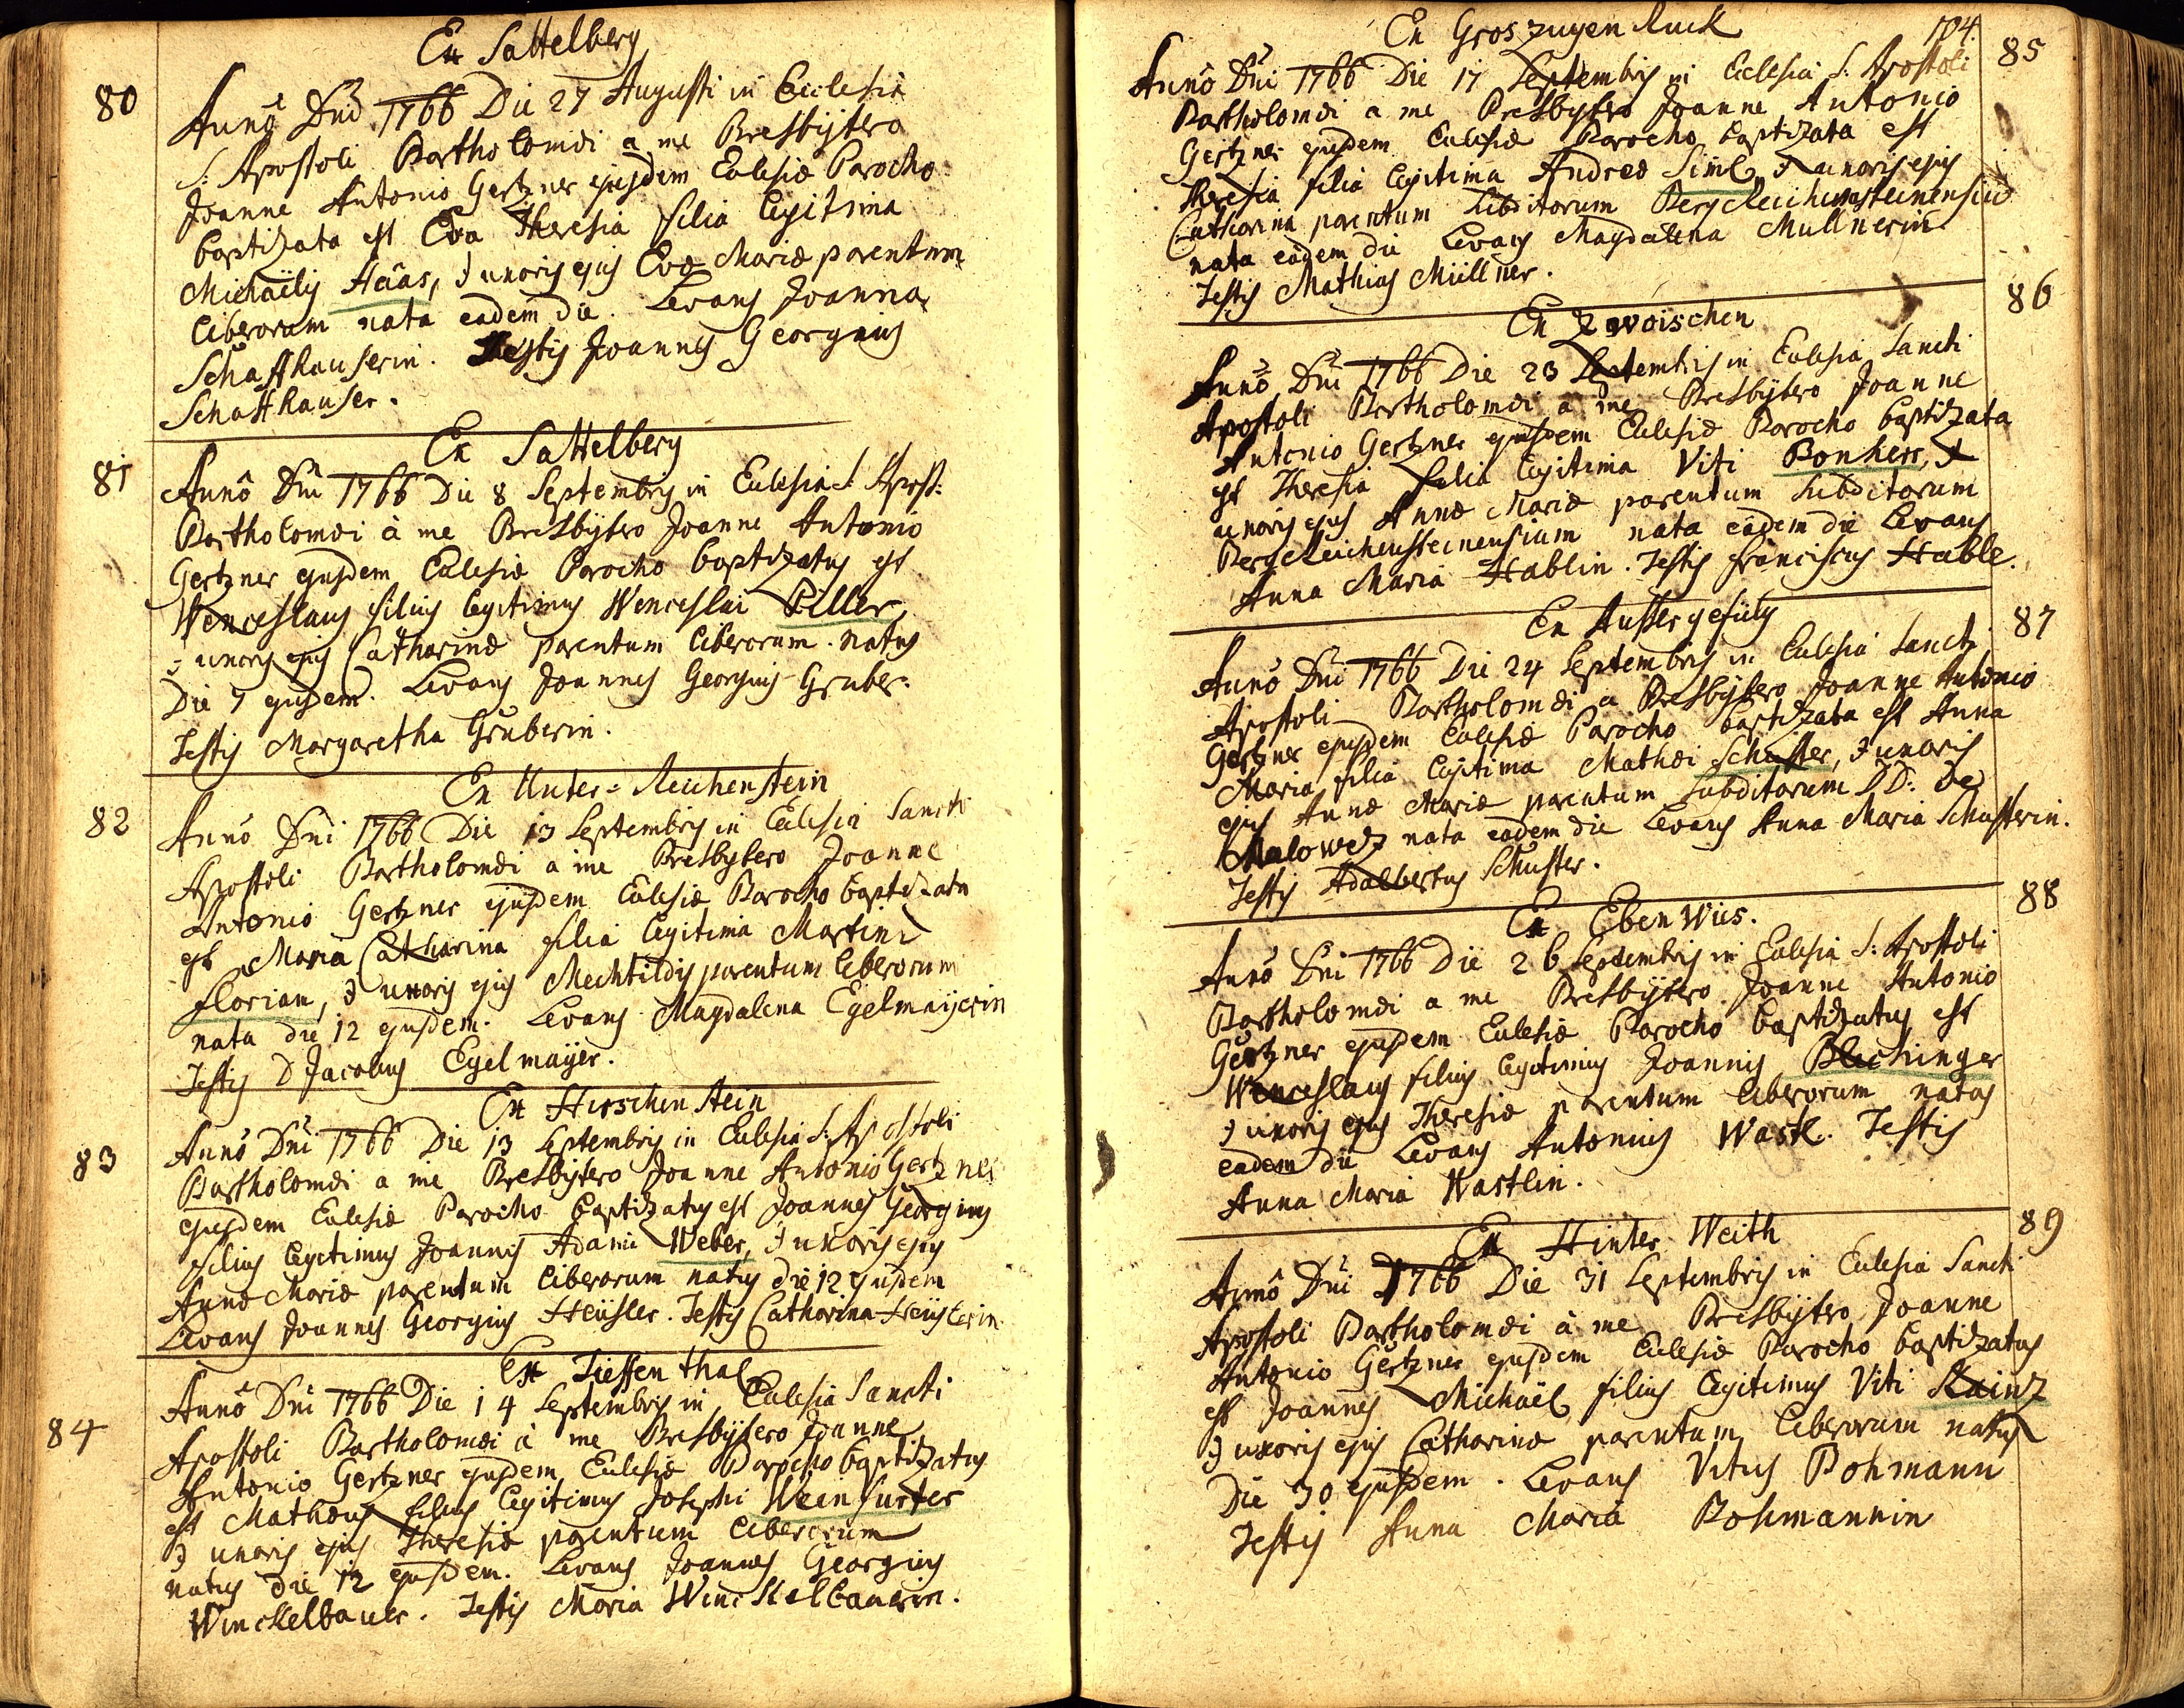 Ex Sattelberg
80
Annô Dnî 1766 Die 27 Augusti in Ecclesiâ
S: Apostoli Bartholomæi a me Presbÿtero
Joanne Antonio Gertzner ejusdem Eclesiæ Parocho
baptizata est Eva Theresia filia legitima
Michaëlis Haas, & uxoris ejus Evæ Mariæ parentum
liberorum nata eadem die. Levans Joanna
Schaffhauserin. Testis Joannes Georgius
Schaffhauser.
Ex Sattelberg
81
Annô Dnî 1766 Die 8 Septembris in Eclesia S: Apost:
Bartholomæi à me Presbÿtero Joanne Antonio
Gertzner ejusdem Eclesiæ Parocho baptizatus est
Wenceslaus filius legitimus Wenceslai Piller,
& uxoris ejus Catharinæ parentum liberorum. natus
Die 7 ejusdem. Levans Joannes Georgius Gruber.
Testis Margaretha Gruberin.
Ex Unter-Reichenstein
82
Annô Dnî 1766 Die 13 Septembris in Eclesia Sancti
Apostoli Bartholomæi a me Presbytero Joanne
Antonio Gertzner ejusdem Eclesiæ Parocho baptizata
est Maria Catharina filia legitima Martini
Florian, & uxoris ejus Mechtildis parentum liberorum
nata die 12 ejusdem. Levans Magdalena Egelmaÿerin
Testis D Jacobus Egelmaÿer.
Ex Hirschenstein
83
Annô Dnî 1766 Die 13 Septembris in Eclesia S: Apostoli
Bartholomæi a me Presbÿtero Joanne Antonio Gertzner
ejusdem Eclesiæ Parocho baptizatus est Joannes Georgius
filius legitimus Joannis Adami Weber, & uxoris ejus
Annæ Mariæ parentum liberorum natus die 12 ejusdem
Levans Joannes Georgius Heüsler. Testis Catharina Heüslerin.
Ex Tieffenthal
84
Annô Dnî 1766 Die 14 Septembris in Eclesia Sancti
Apostoli Bartholomæi à me Presbÿtero Joanne
Antonio Gertzner ejusdem Eclesiæ Parocho baptizatus
est Mathæus filius legitimus Josephi Weinfurter
& uxoris ejus Theresiæ parentum liberorum
natus die 12 ejusdem. Levans Joannes Georgius
Winckelbauer. Testis Maria Winckelbauerin.
104.
Ex Groszugen Ruck
85
Annô Dnî 1766 Die 17 Septembris in Eclesia S: Apostoli
Bartholomæi a me Presbÿtero Joanne Antonio
Gertzner ejusdem Eclesiæ Parocho baptizata est
Theresia filia legitima Andreæ Siml, & uxoris ejus
Catharina parentum subditorum Bergreichensteinensium
nata eadem die Levans Magdalena Müllnerin
Testis Mathias Müllner.
Ex Zwoischen
86
Annô Dnî 1766 Die 23 Septembris in Eclesia Sancti
Apostoli Bartholomæi a me Presbÿtero Joanne
Antonio Gertzner ejusdem Eclesiæ Parocho baptizata
est Theresia filia legitima Viti Ponherr, &
uxoris ejus Annæ Mariæ parentum subditorum
Bergreichensteinensium nata eadem die Levans
Anna Maria Hablin. Testis Franciscus Hable.
Ex Aussergefülg
87
Annô Dnî 1766 Die 24 Septembris in Eclesia Sancti
Apostoli Bartholomæi a Presbÿtero Joanne Antonio
Gertzner ejusdem Eclesiæ Parocho baptizata est Anna
Maria filia legitima Mathæi Schuster, & uxoris
ejus Annæ Mariæ parentum subditorum DD: de
Malowetz nata eadem die Levans Anna Maria Schusterin.
Testis Adalbertus Schuster.
Ex Eben Wiis.
88
Annô Dnî 1766 Die 26 Septembris in Eclesia S: Apostoli
Bartholomæi a me Presbÿtero Joanne Antonio
Gertzner ejusdem Eclesiæ Parocho baptizatus est
Wenceslaus filius legitimus Joannis Blechinger
& uxoris ejus Theresiæ parentum liberorum natus
eadem die Levans Antonius Wastl. Testis
Anna Maria Wastlin.
Ex Hinter Weith
89
Annô Dnî 1766 Die 31 Septembris in Eclesia Sancti
Apostoli Bartholomæi à me Presbÿtero Joanne
Antonio Gertzner ejusdem Eclesiæ Parocho baptizatus
est Joannes Michaël filius legitimus Viti Kainz
& uxoris ejus Catharinæ parentum liberorum natus
Die 30 ejusdem. Levans Vitus Pohmann
Testis Anna Maria Pohmannin